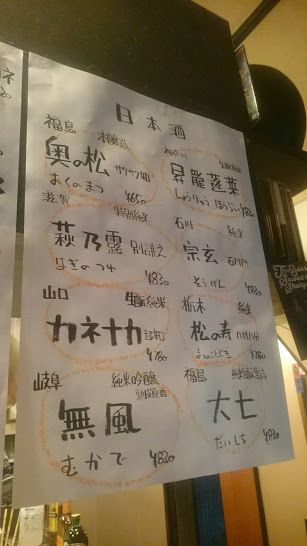 日本酒
福島
奥の松
おくのまつ
¥650
神奈川
昇龍蓬莱
しょうりゅうほうらい
滋賀
特別純米
萩乃露
はぎのつゆ
¥830
石川
純米
宗玄
石川門
そうげん
¥830
山口
純米
カネナカ
¥780
栃木
純米
松の寿
まつのことぶき
¥780
岐阜
純米吟醸
無風
むかで
¥830
福島
大七
だいしち
¥830